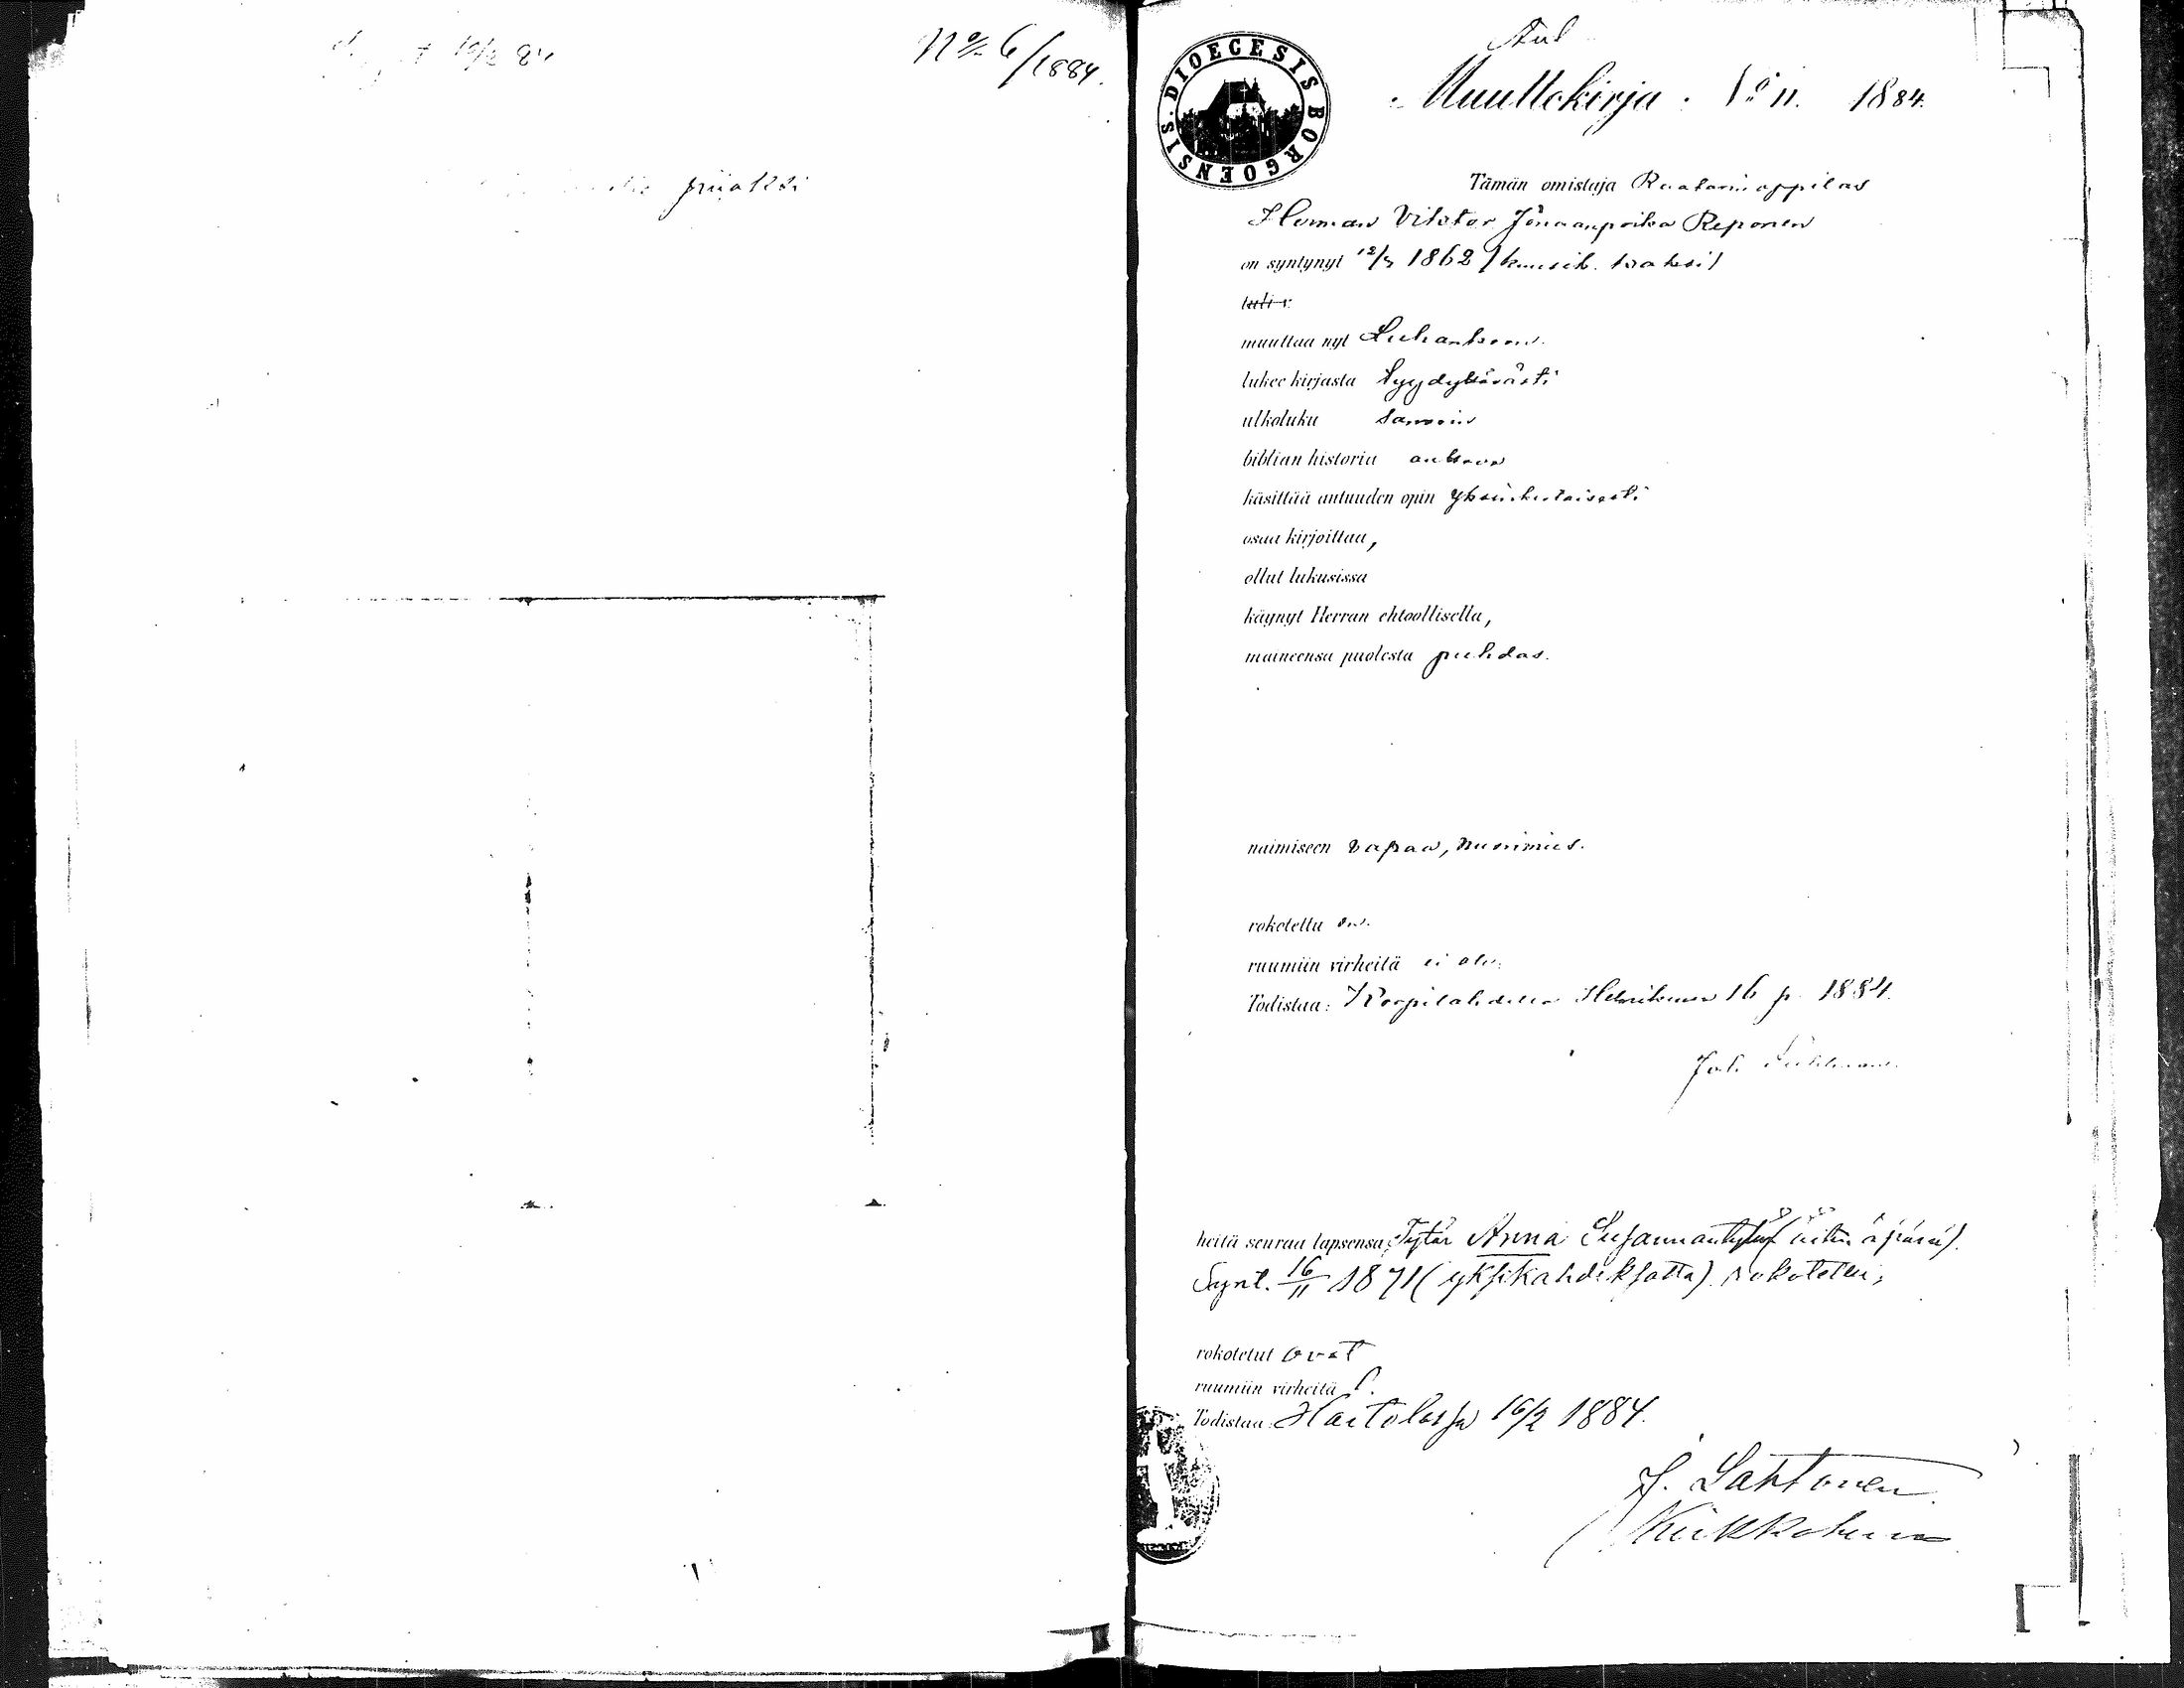 10/2 84
No 6/1884.
piiaksi
DIOECESIS BORGOENSIS.
Muuttokirja. No 11. 1884.
Tämän omistaja Raatarinoppilas
Herman Viktor Jonaanpoika Reponen
on syntynyt 12/3 1862 /kuusik. kaksi/
tuli v.
muuttaa nyt Luhankaan.
lukee kirjasta tyydyttävästi
ulkoluku samoin
biblian historia auttava
käsittää autuuden opin yksinkertaisesti
osaa kirjoittaa,
ollut lukusissa
käynyt Herran ehtoollisella,
maineensa puolesta puhdas.
naimiseen vapaa, nuorimies.
rokotettu on.
ruumiin virheitä ei ole.
Todistaa: Korpilahdella Helmikuun 16 p. 1884.
Joh.
heitä seuraa lapsensa; Tytär Anna Susannantytär (äitin äpärä).
Synt. 16/11 1871 (yksikahdeksatta). rokotettu;
rokotetut ovat
ruumiin virheitä
Todistaa: Hartolassa 16/2 1884.
J. Lahtonen
Kirkkoherra